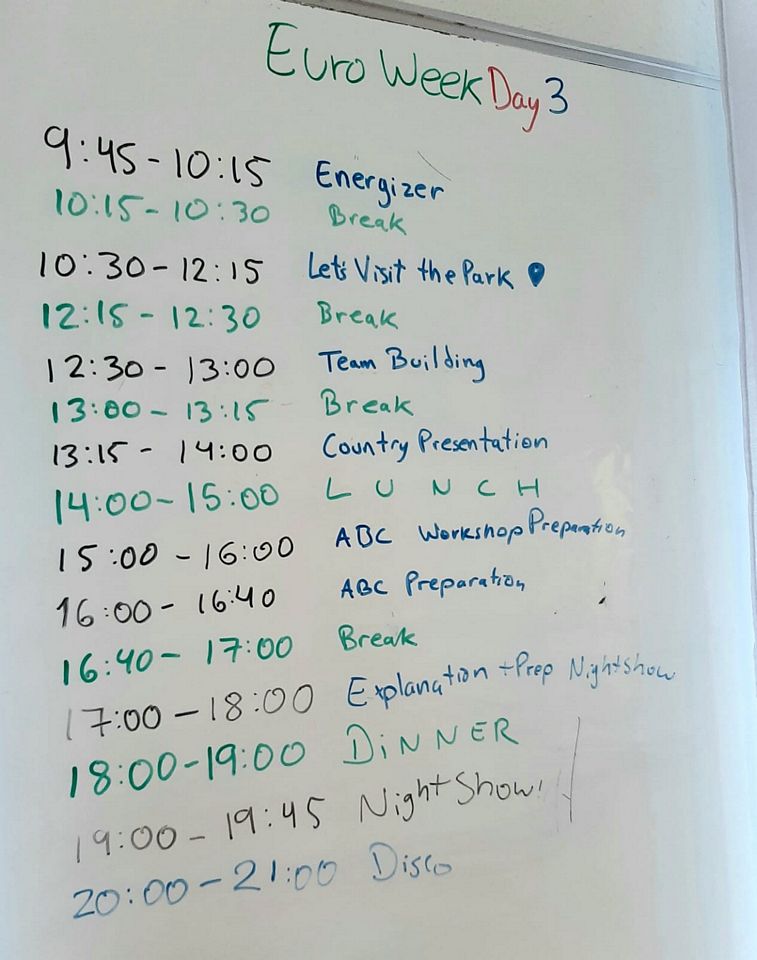 Euro Week Day 3
9:45 - 10:15 Energizer
10:15 - 10:30 Break
10:30 - 12:15 Let's Visit the Park
12:15 - 12:30 Break
12:30 - 13:00 Team Building
13:00 - 13:15 Break
13:15 - 14:00 Country Presentation
14:00 - 15:00 LUNCH
15:00 - 16:00 ABC Workshop Preparation
16:00 - 16:40 ABC Preparation
16:40 - 17:00 Break
17:00 - 18:00 Explanation + Prep Nightshow
18:00 - 19:00 DiNNER
19:00 - 19:45 Night Show!
20:00 - 21:00 Disco